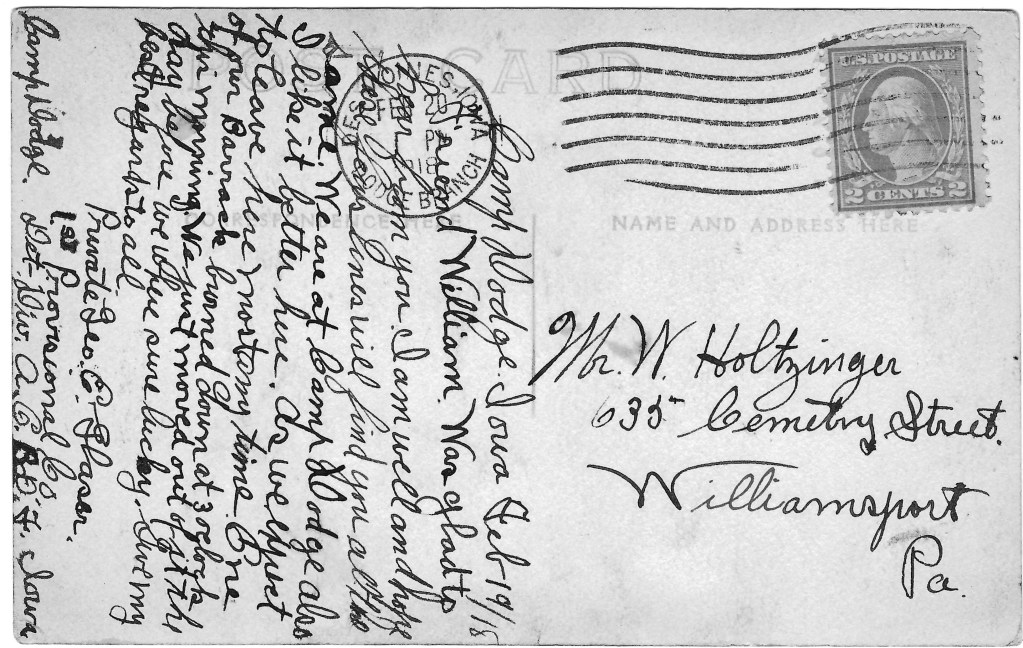 POST CARD
CORRESPONDENCE HERE
NAME AND ADDRESS HERE
U.S. POSTAGE
2 CENTS 2
DES MOINES, IOWA
FEB 20
P
1918
CAMP DODGE BRANCH
Camp Dodge. Iowa Feb 19/18
Friend William. Was glad to
hear from you. I am well and hope
these lines will find you all the
same. We are at Camp Dodge also
I like it better here. As we expect
to leave here most any time. One
of our Barracks burned down at 3 oclock
this morning. We just moved out of it the
day before we where sure lucky. Give my
best regards to all
Private Geo. E. Flaser.
1st Provisional Co.
Camp Dodge. Det. Div. A. E. F. Iowa
Mr. W. Holtzinger
635 Cemetry Street.
Williamsport
Pa.